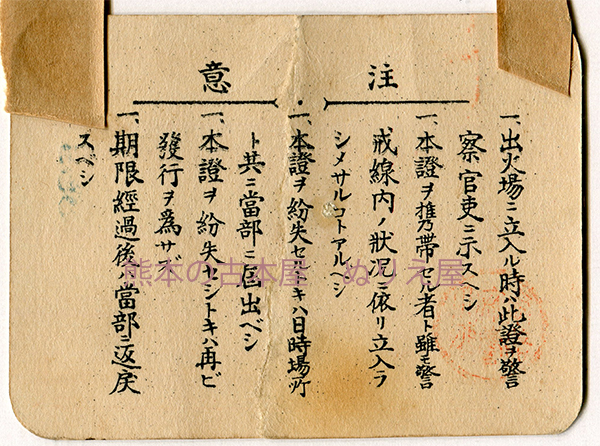 注意
一、出火場ニ立入ル時ハ此證ヲ警
察官吏ニ示スヘシ
一、本證ヲ携帯セル者ト雖モ警
戒線内ノ狀況ニ依リ立入ラ
シメサルコトアルヘシ
一、本證ヲ紛失セシトキハ日時場所
ト共ニ當部ニ屆出ベシ
一、本證ヲ紛失セシトキハ再ビ
發行ヲ爲サズ
一、期限經過後ハ當部ニ返戻
スベシ
熊本の古本屋 ぬりえ屋